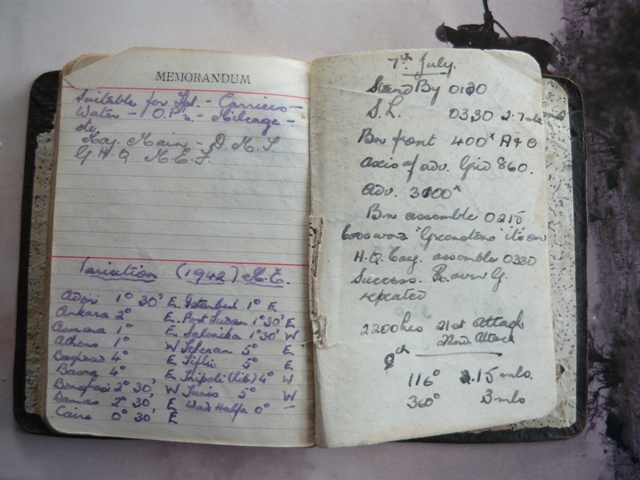 MEMORANDUM
Suitable for - Carriers -
Water - O.P's - Mileage -
Maj. Main - D.M.I
G H Q M.E.F.
Variation (1942) M.E.
1° 30' E. Istanbul 1° E
Ankara 2° E. Port Sudan 1° 30' E
1° E Salonika 1° 30' W
Athens 1° W Teheran 5° E
Bagdad 4° E Tiflis 5° E
Basra 4° E. Tripoli (Lib) 4° W
Benghazi 2° 30' W Tunis 5° W
Damas 2° 30' E Wadi Halfa 0° -
Cairo 0° 30' E
7th July.
Stand By 0130
S.L. 0330
Bn front 400ˣ
axis of adv. Grid 860.
adv. 3100ˣ
Bn assemble 0215
H.Q. Coy. assemble 0230
Success. R. over G.
repeated
2200hrs 21st Attach
22nd Attach
116° 2.15 mls.
360° 3 mls